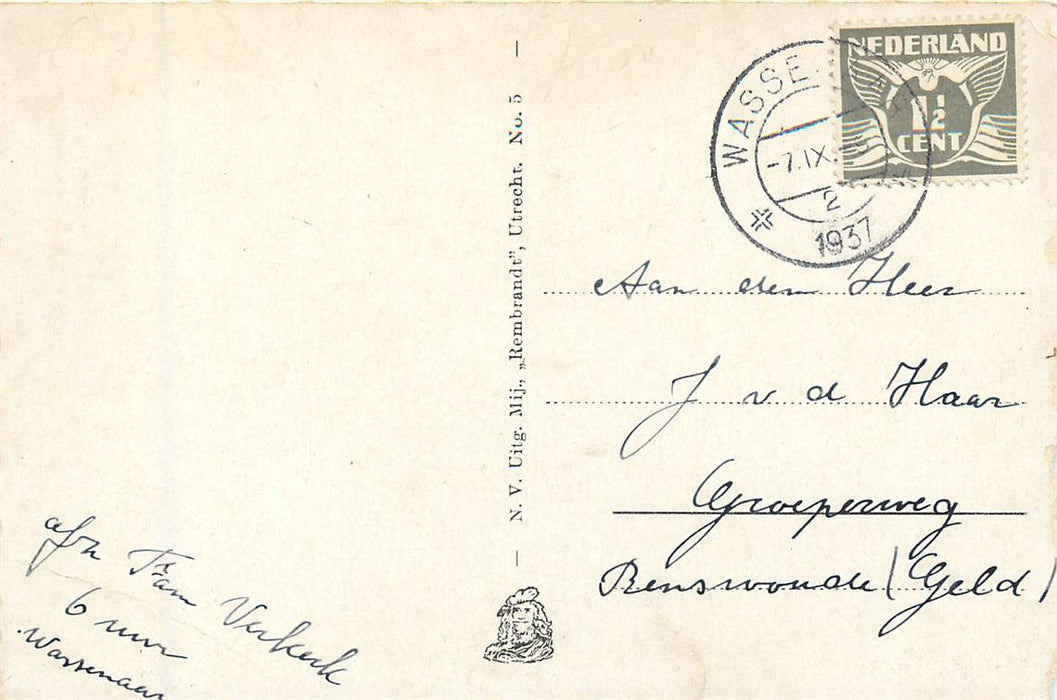 NEDERLAND
1½
CENT
WASSE
-7.IX
2
1937
Aan den Heer
J v d Haar
Groeperweg
Renswoude (Geld)
N. V. Uitg. Mij., „Rembrandt”, Utrecht. No. 5
afz Fam Verkerk
6 uur
Wassenaar